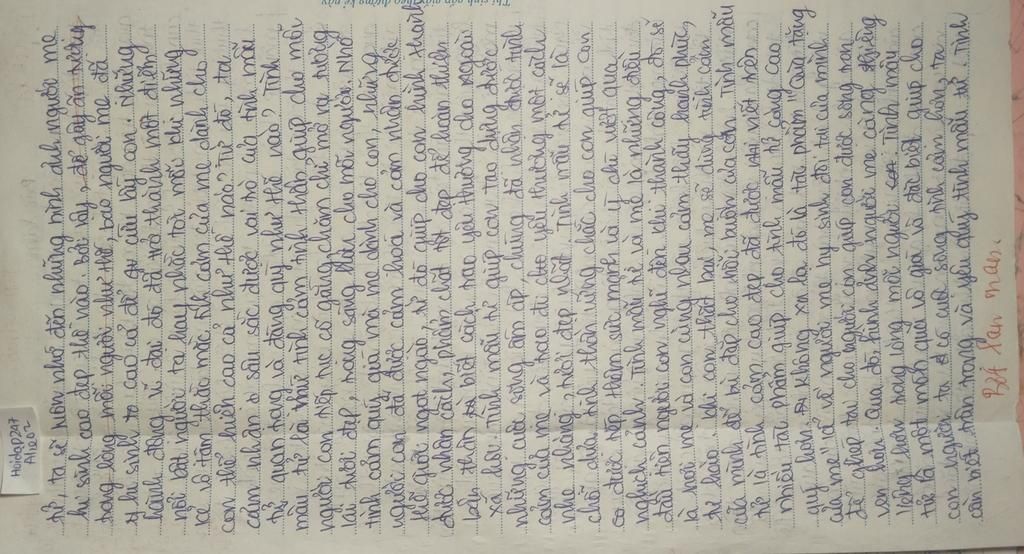 Thí sinh gấp giấy theo đường kẻ này
tử, ta sẽ luôn nhớ đến những hình ảnh người mẹ
hi sinh cao đẹp thế nào. Bởi vậy, để gây ấn tượng
trong lòng mỗi người như thế, bao người mẹ đã
hi sinh cao cả để cứu lấy con. Những
hành động vĩ đại đó đã trở thành một điểm
nổi bật người ta hay nhắc tới mỗi khi những
kẻ vô tâm thắc mắc tình cảm của mẹ dành cho
con thể hiện cao cả như thế nào? Từ đó, ta
cảm nhận sâu sắc được vai trò của tình mẫu
tử quan trọng và đáng quý như thế nào? Tình
mẫu tử là thứ tình cảm tinh thần giúp cho mỗi
người con tiếp tục cố gắng, chăm chỉ mở ra tương
lai tươi đẹp, trong sáng hơn cho mỗi người. Nhờ
tình cảm quý giá mà mẹ dành cho con, những
người con đã được cảm hoá và cảm nhận được
sự ngọt ngào từ đó giúp cho con hình thành
được nhân cách, phẩm chất tốt đẹp để hoàn thiện
bản thân biết cách trao yêu thương cho người
xã hội. Tình mẫu tử giúp con tạo dựng được
những cuộc sống ấm áp, chúng đã nhận được tình
cảm của mẹ và trao đi cho yêu thương một cách
nhẹ nhàng, tươi đẹp nhất. Tình mẫu tử sẽ là
chỗ dựa tinh thần vững chắc cho con giúp con
có được tiếp thêm sức mạnh và ý chí vượt qua
nghịch cảnh. Tình mẫu tử và mẹ là những điều
đầu tiên người con nghĩ đến khi thành công, đó sẽ
là nơi mà con cùng nhau cảm thấy hạnh phúc,
tự hào. Khi con thất bại mẹ sẽ dùng tình cảm
của mình để bù đắp cho nỗi buồn của con. Tình mẫu
tử là tình cảm cao đẹp đã được viết trên
nhiều tác phẩm giúp cho tình mẫu tử càng cao
quý hơn. Không xa lạ, đó là tác phẩm "Cửa tang
của mẹ" về người mẹ hi sinh đôi tai của mình
để ghép tai cho người con giúp con được sống trọn
vẹn hơn. Qua đó, hình ảnh người mẹ càng thiêng
liêng hơn trong lòng mỗi người. Tình mẫu
tử là một món quà vô giá và đặc biệt giúp cho
con người ta có cuộc sống tình cảm hơn, ta
cần biết trân trọng và yêu quý tình mẫu tử. Tình